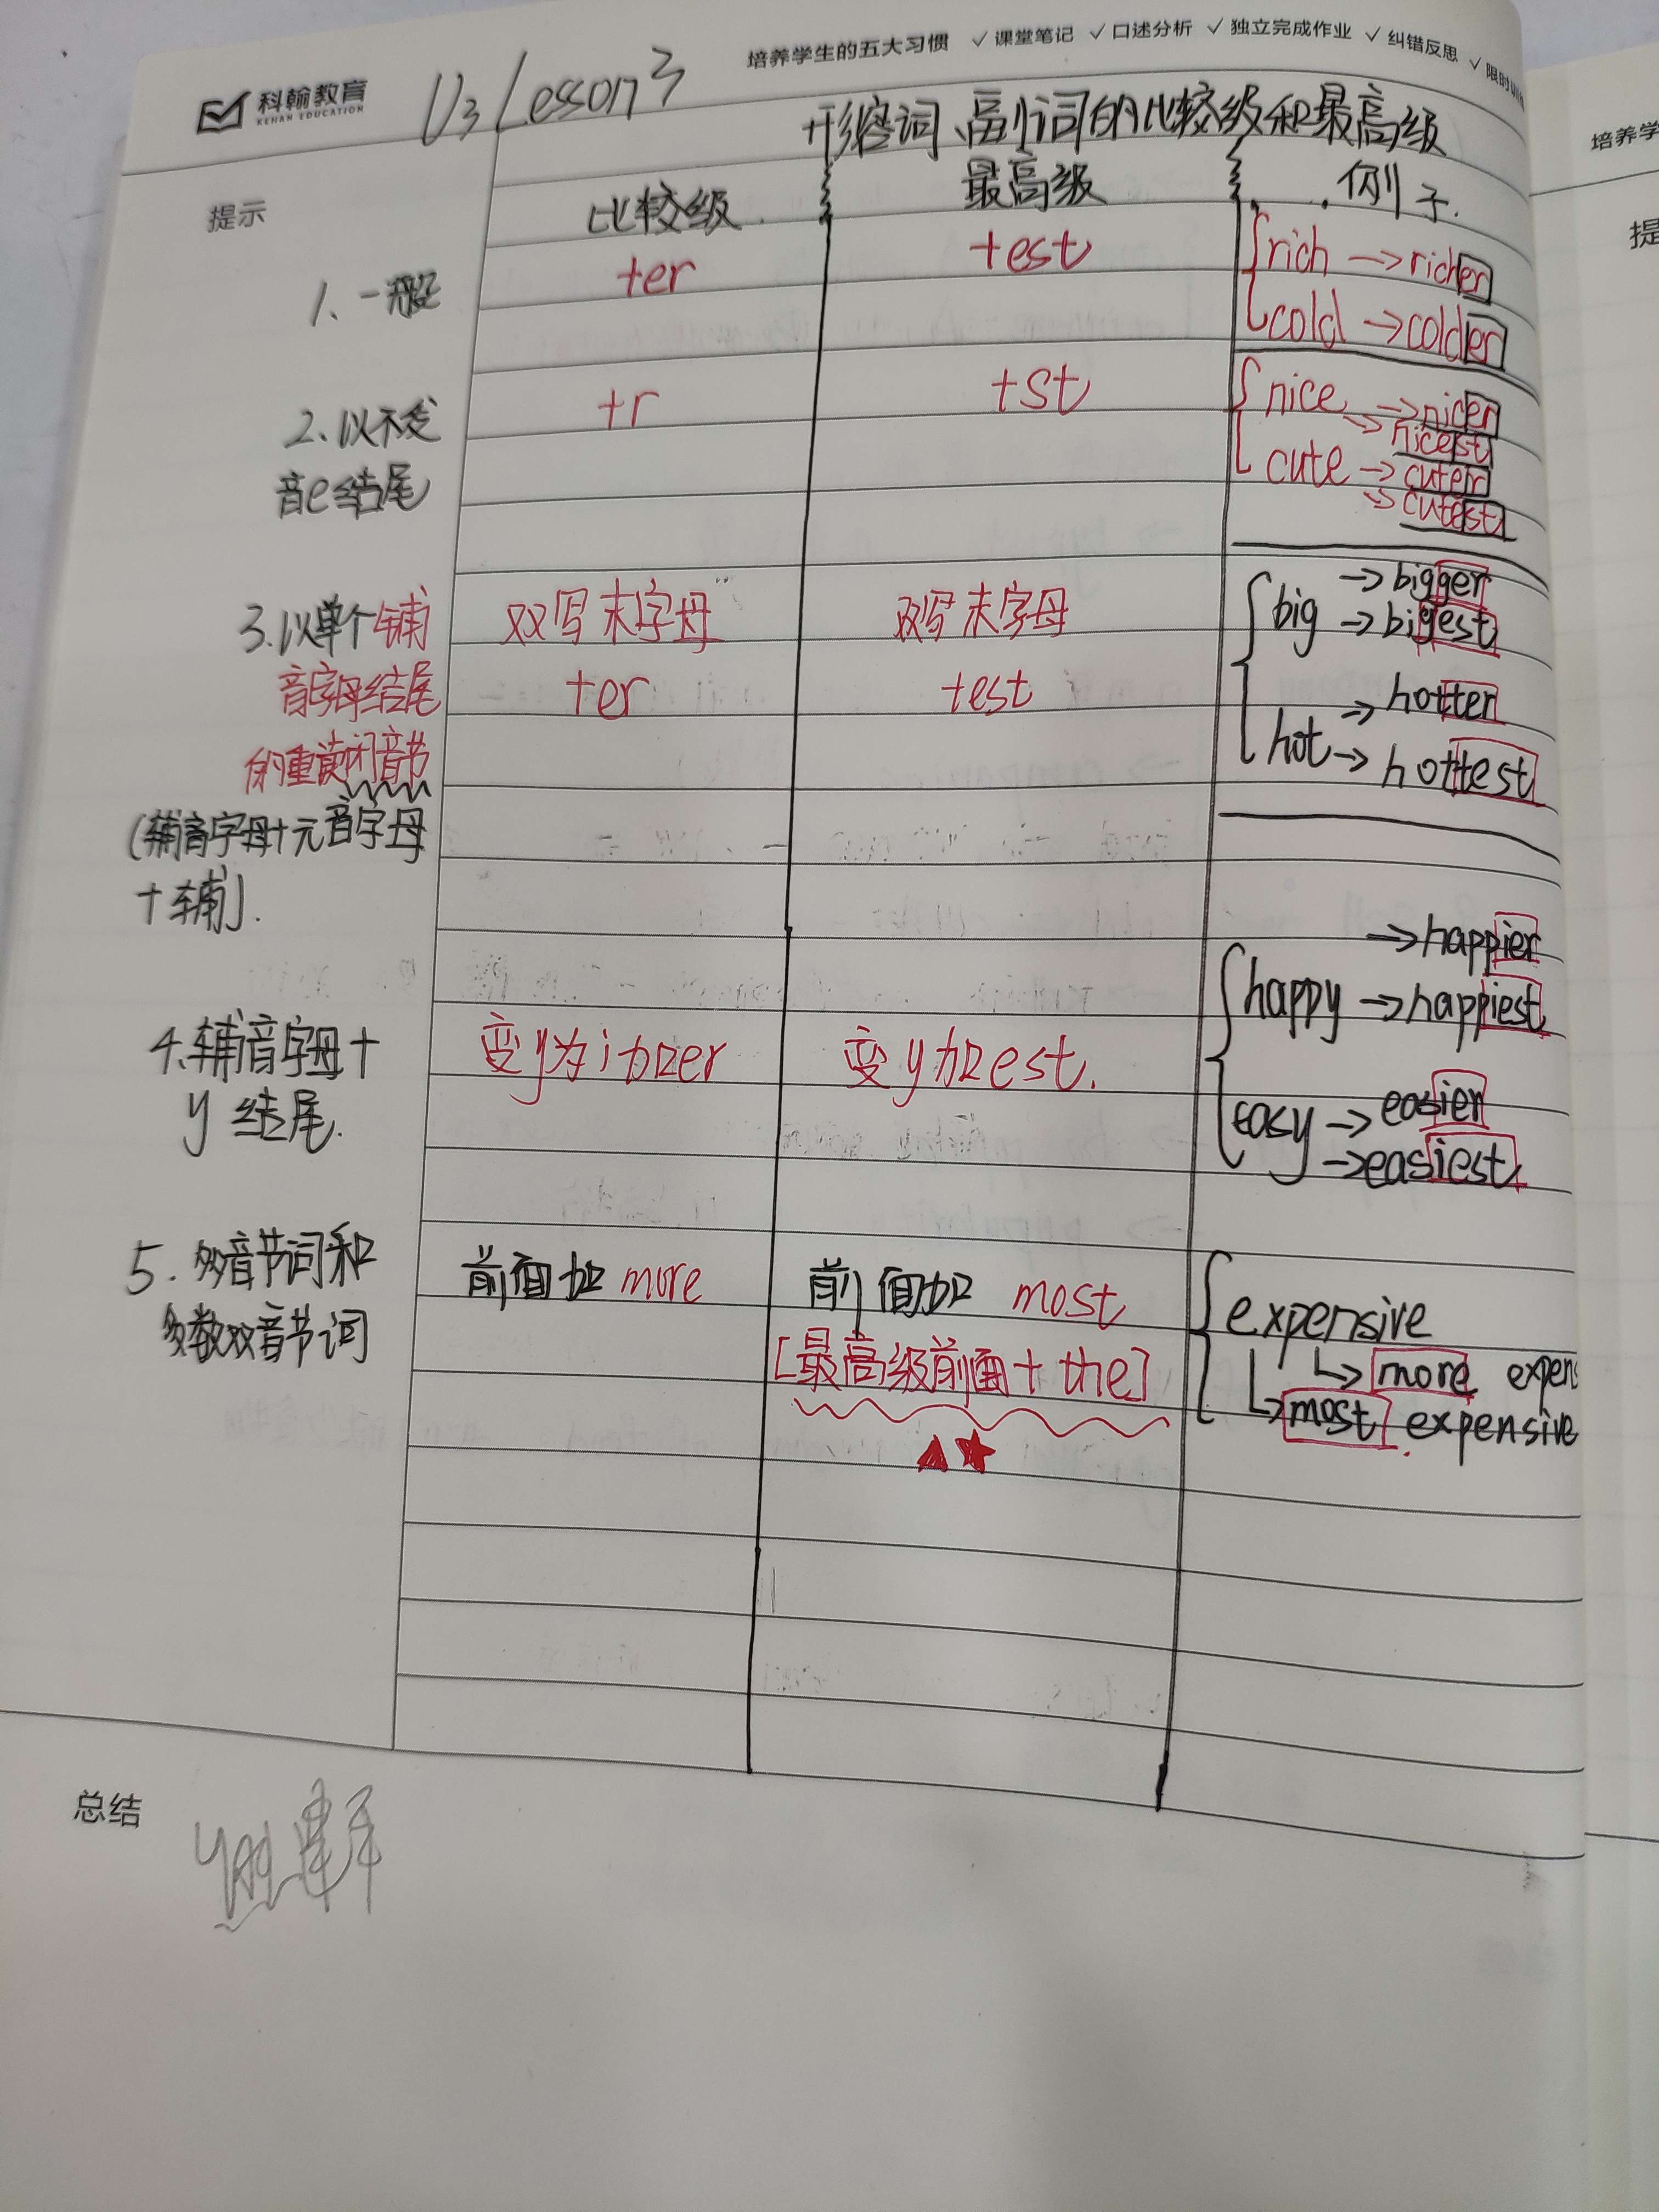 培养学生的五大习惯 ✓课堂笔记 ✓口述分析 ✓独立完成作业 ✓纠错反思 ✓限时训
科翰教育
KEHAN EDUCATION
U3 Lesson 3
培养学
形容词、副词的比较级和最高级
提示 比较级 最高级 例子.
提
1、一般 +er +est rich → richer
cold → colder
2、以不发音e结尾 +r +st nice → nicer
→ nicest
cute → cuter
→ cutest
3.以单个辅音字母结尾的重读闭音节 双写末字母 +er 双写末字母 +est
(辅音字母+元音字母+辅).
big → bigger
→ bigest
hot → hotter
→ hottest
4.辅音字母+y结尾. 变y为i加er 变y加est.
happy → happier
→ happiest
easy → easier
→ easiest
5.多音节词和多数双音节词 前面加 more 前面加 most
[最高级前面+the]
▲★
expensive
↳ more expens
↳ most expensive
总结